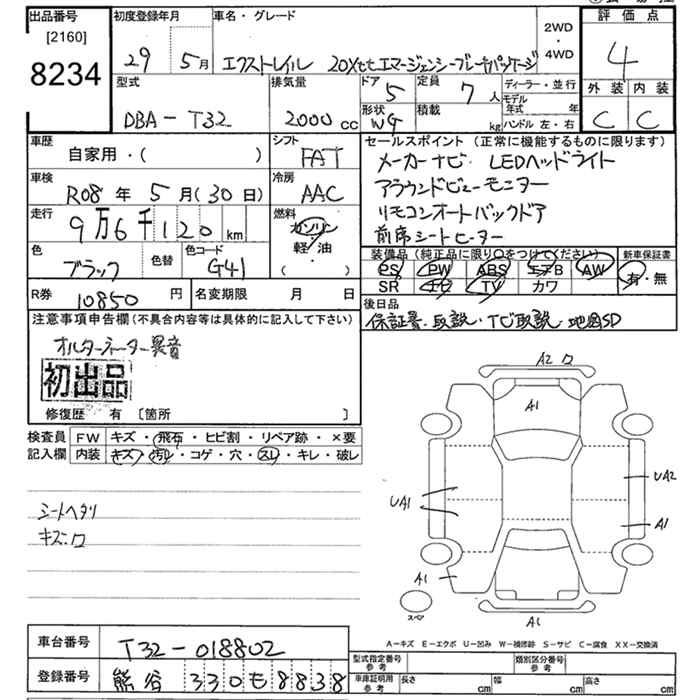 出品番号
[2160]
8234
初度登録年月
29 5月
車名・グレード
エクストレイル 20Xtt エマージェンシーブレーキパッケージ
2WD
・
4WD
評価点
4
外装 内装
C C
型式
DBA-T32
排気量
2000 cc
ドア 5
定員 7 人
ディーラー・並行
モデル年式 年
形状 WG
積載 kg
ハンドル 左・右
車歴
自家用・( )
シフト
FAT
車検
R08 年 5 月(30日)
冷房
AAC
走行
9万6千120 km
燃料
ガソリン
軽・油
( )
色
ブラック
色替
色コード
G41
R券 10850 円
名変期限 月 日
セールスポイント (正常に機能するものに限ります)
メーカーナビ LEDヘッドライト
アラウンドビューモニター
リモコンオートバックドア
前席シートヒーター
装備品(純正品に限り○をつけてください)
新車保証書
PS PW ABS エアB AW
SR ナビ TV カワ
有・無
後日品
保証書・取説・ナビ取説・地図SD
注意事項申告欄(不具合内容等は具体的に記入して下さい)
オルターネーター異音
初出品
修復歴 有 [箇所 ]
検査員 FW キズ・飛石・ヒビ割・リペア跡・×要
記入欄 内装 キズ・汚レ・コゲ・穴・スレ・キレ・破レ
シートヘタリ
キズ.ロ
A2 ロ
A1
UA2
UA1
A1
A1
スペア
A1
A-キズ E-エクボ U-凹み W-補修跡 S-サビ C-腐食 XX-交換済
車台番号 T32-018802
登録番号 熊谷 330も8838
型式指定番号 参考
類別区分番号 参考
車庫証明用 参考
長さ cm 幅 cm 高さ cm